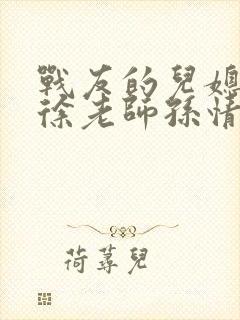 戰友的兒媳
徐老師孫情
荷蕁兒